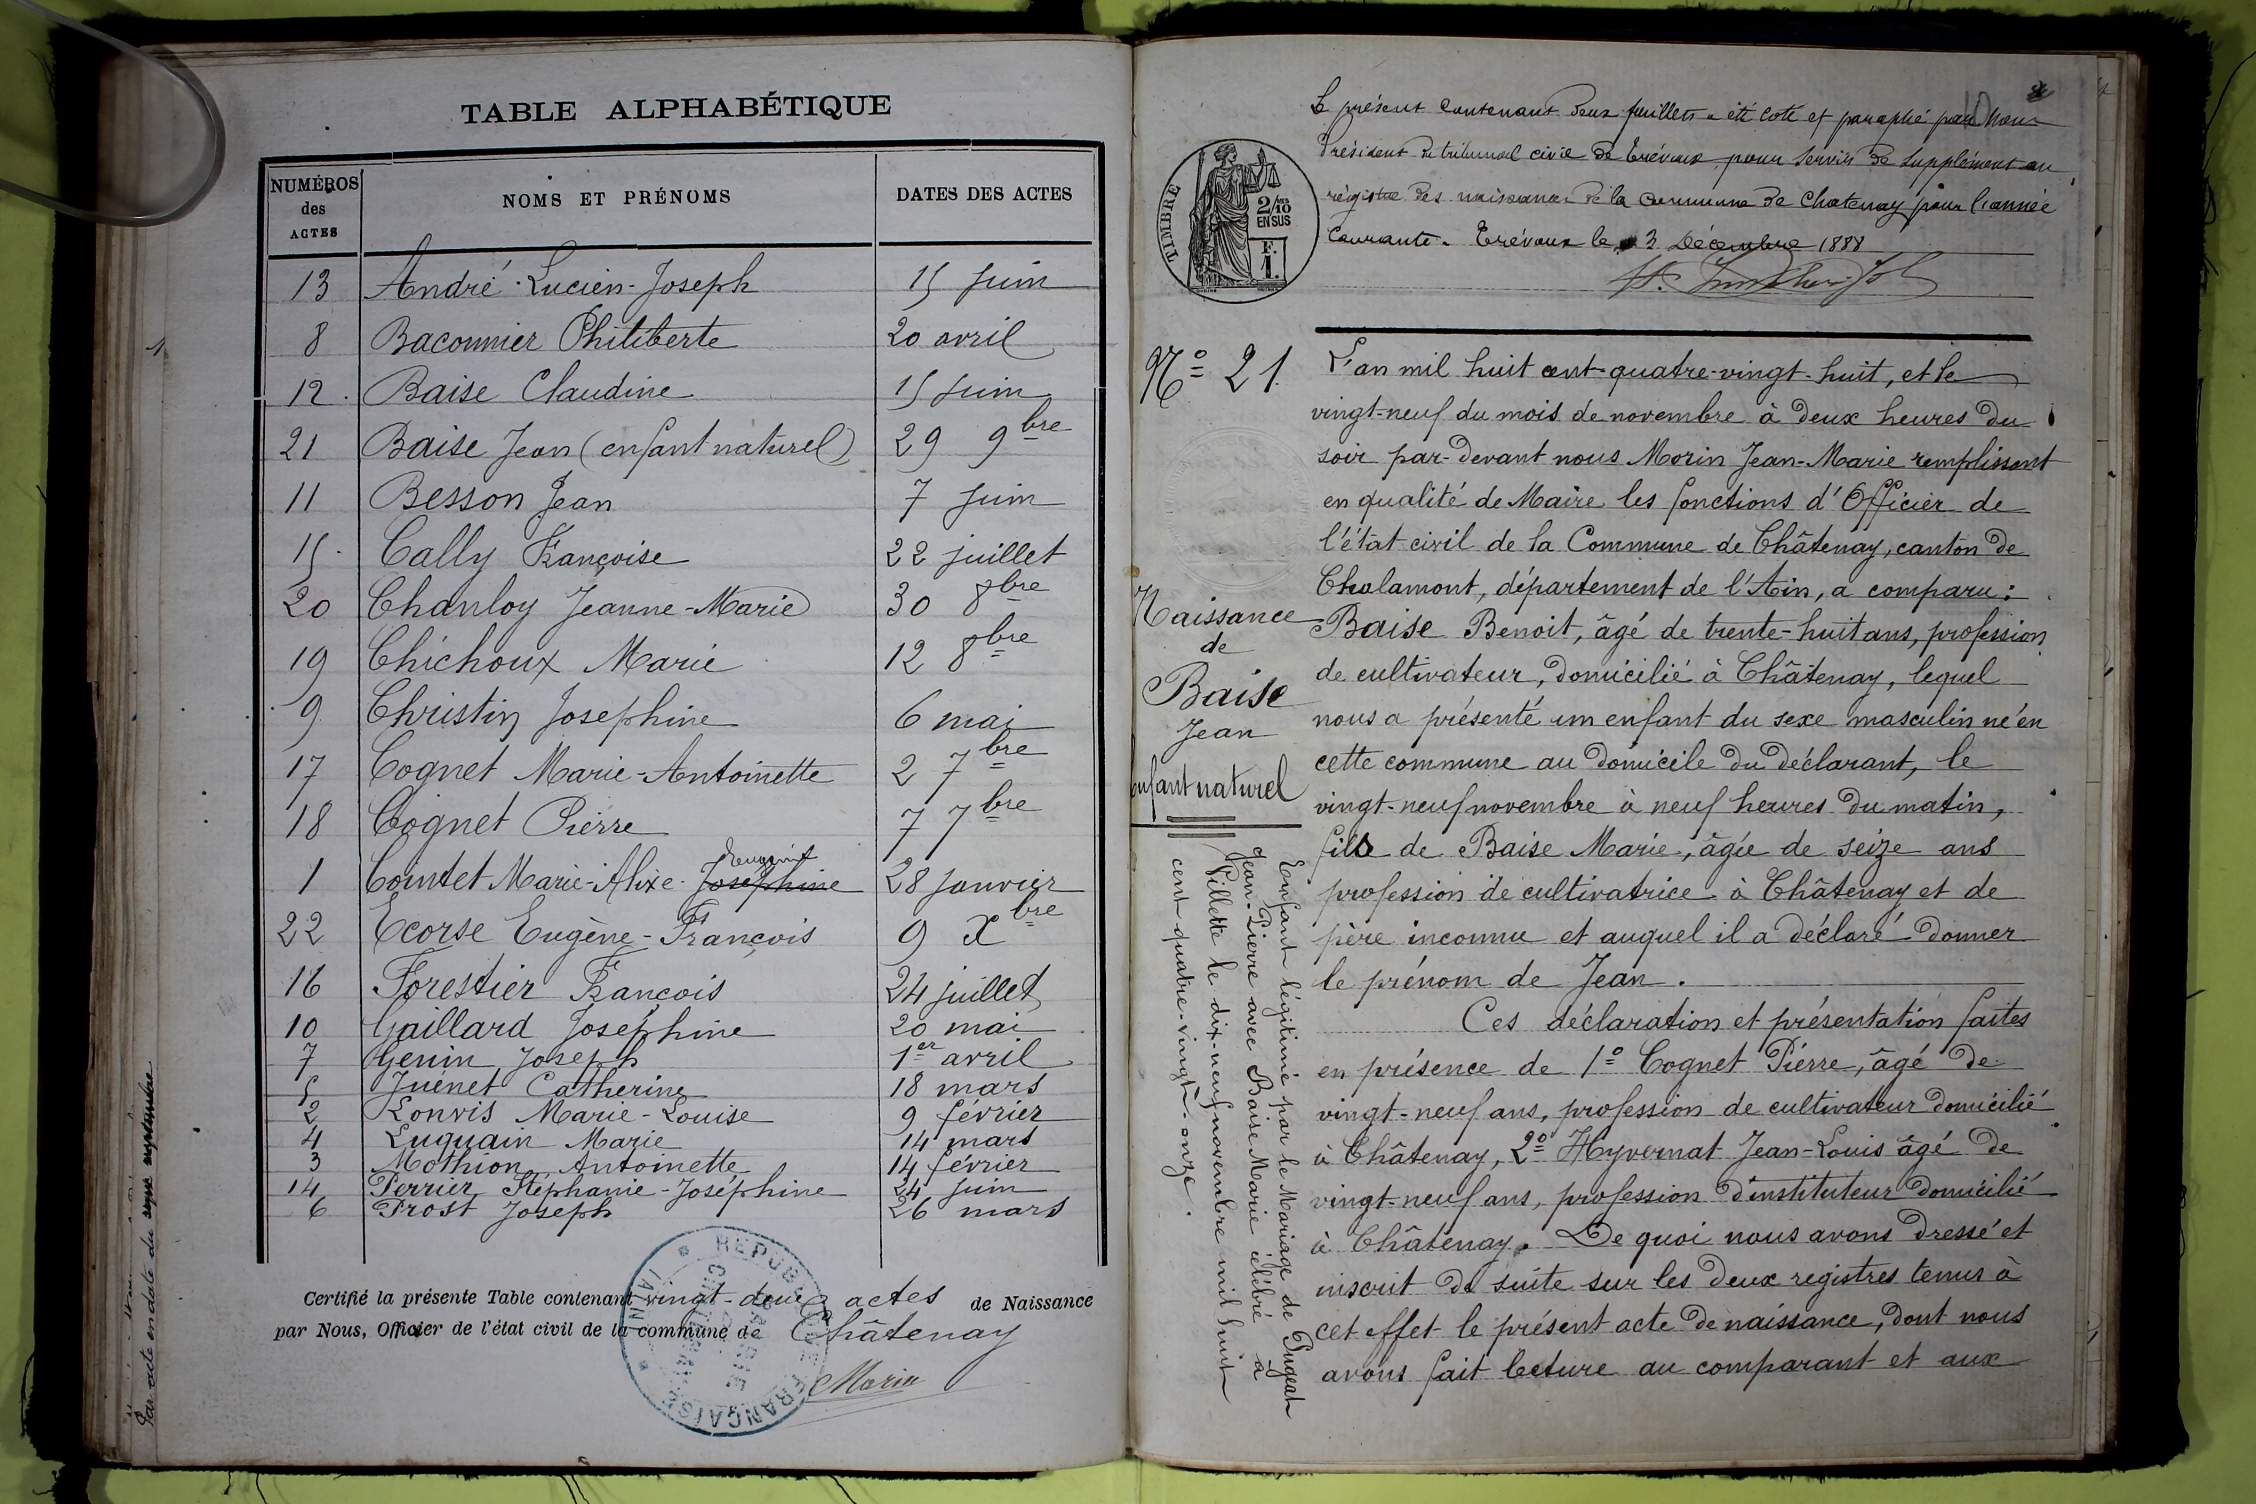 TABLE ALPHABÉTIQUE
NUMÉROS des ACTES NOMS ET PRÉNOMS DATES DES ACTES
13 André Lucien-Joseph 15 Juin
8 Baconnier Philiberte 20 avril
12. Baise Claudine 15 Juin
21 Baise Jean (enfant naturel) 29 9bre
11 Besson Jean 7 Juin
15. Cally Françoise 22 juillet
20 Chanloy Jeanne-Marie 30 8bre
19 Chichoux Marie 12 8bre
9 Christin Josephine 6 mai
17 Cognet Marie-Antoinette 2 7bre
18 Cognet Pierre 7 7bre
1 Comtet Marie-Alixe Josephine 28 janvier
22 Ecorse Eugène-François 9 Xbre
16 Forestier François 24 juillet
10 Gaillard Joséphine 20 mai
7 Genin Joseph 1er avril
5 Juénet Catherine 18 mars
2 Lonvis Marie-Louise 9 février
4 Luquain Marie 14 mars
3 Mothion Antoinette 14 février
14 Perrier Stéphanie-Joséphine 24 Juin
6 Prost Joseph 26 mars
Certifié la présente Table contenant vingt-deux actes de Naissance
par Nous, Officier de l'état civil de la commune de Châtenay
Morin
RÉPUBLIQUE FRANÇAISE
Le présent contenant deux feuillets a été coté et paraphé par Nous
Président du tribunal civil de Trévoux pour servir de supplément au
régistre des naissances de la commune de Chatenay pour l'année
Courante. Trévoux le 3 Décembre 1888
TIMBRE
2/10 EN SUS
F. 1.
No 21.
Naissance
de
Baise
Jean
Enfant naturel
Enfant légitimé par le Mariage de Pugeat
Jean-Pierre avec Baise Marie célébré à
Villette le dix-neuf novembre mil huit
cent-quatre-vingt-onze.
L'an mil huit cent-quatre-vingt-huit, et le
vingt-neuf du mois de novembre à deux heures du
soir par-devant nous Morin Jean-Marie remplissant
en qualité de Maire les fonctions d'Officier de
l'état civil de la Commune de Châtenay, canton de
Chalamont, département de l'Ain, a comparu:
Baise Benoit, âgé de trente-huit ans, profession
de cultivateur, domicilié à Châtenay, lequel
nous a présenté un enfant du sexe masculin né en
cette commune au domicile du déclarant, le
vingt-neuf novembre à neuf heures du matin,
fils de Baise Marie, âgée de seize ans
profession de cultivatrice à Châtenay et de
père inconnu et auquel il a déclaré donner
le prénom de Jean.
Ces déclaration et présentation faites
en présence de 1o Cognet Pierre, âgé de
vingt-neuf ans, profession de cultivateur domicilié
à Châtenay, 2o Hyvernat Jean-Louis âgé de
vingt-neuf ans, profession d'instituteur domicilié
à Châtenay. De quoi nous avons dressé et
inscrit de suite sur les deux registres tenus à
cet effet le présent acte de naissance, dont nous
avons fait lecture au comparant et aux